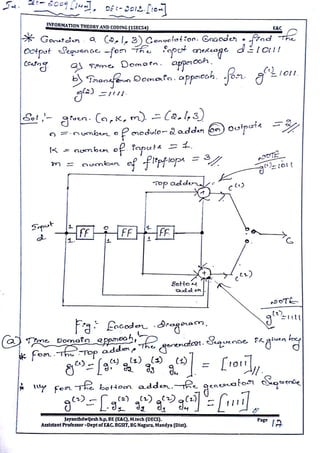 INFORMATION THEORY AND CODING (15EC54) E&C
* Consider a (2,1,3) Convolution Encoder. Find the
Output Sequence for the input message d = 10111
Using a) Time Domain approach.
b) Transform Domain approach for g(1) = 1011.
g(2) = 1111.
Sol:- given. (n, k, m) = (2,1,3)
n = number of modulo-2 adder (or) outputs = 2
k = number of inputs = 1.
m = number of flipflops = 3
NOTE
g(1)=1011
Top adder
C(1)
Input
d
1 0 1 1
FF FF FF
1 1 1 1
C
C(2)
Bottom
adder
NOTE
g(2)=1111
Fig: Encoder diagram.
(a) Time Domain approach,
* For The Top adder, The generator Sequence is given by
g(1) = [g1(1) g2(1) g3(1) g4(1)] = [1011]
* llly For The bottom adder The generator Sequence
g(2) = [g1(2) g2(2) g3(2) g4(2)] = [1111]
Jayanthdwijesh h.p, BE (E&C), M.tech (DECS). Page
Assistant Professor -Dept of E&C, BGSIT, BG Nagara, Mandya (Dist). 17